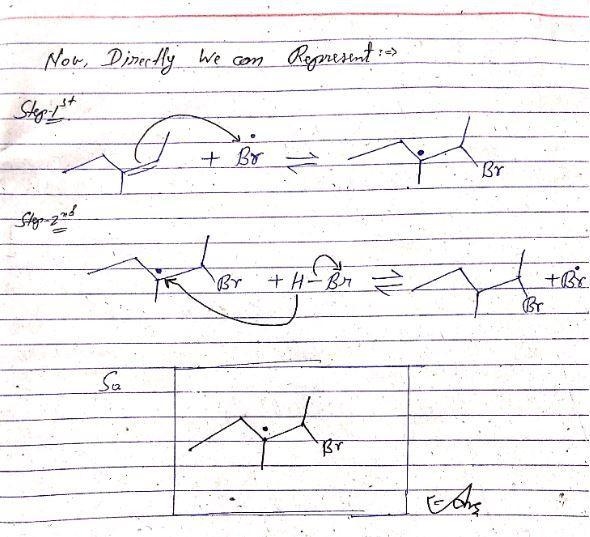 Now, Directly We can Represent :⇒
Step-1st
+ Ḃr ⇌ Br
Step-2nd
Br + H-Br ⇌ Br + Ḃr
So
Br
Ans